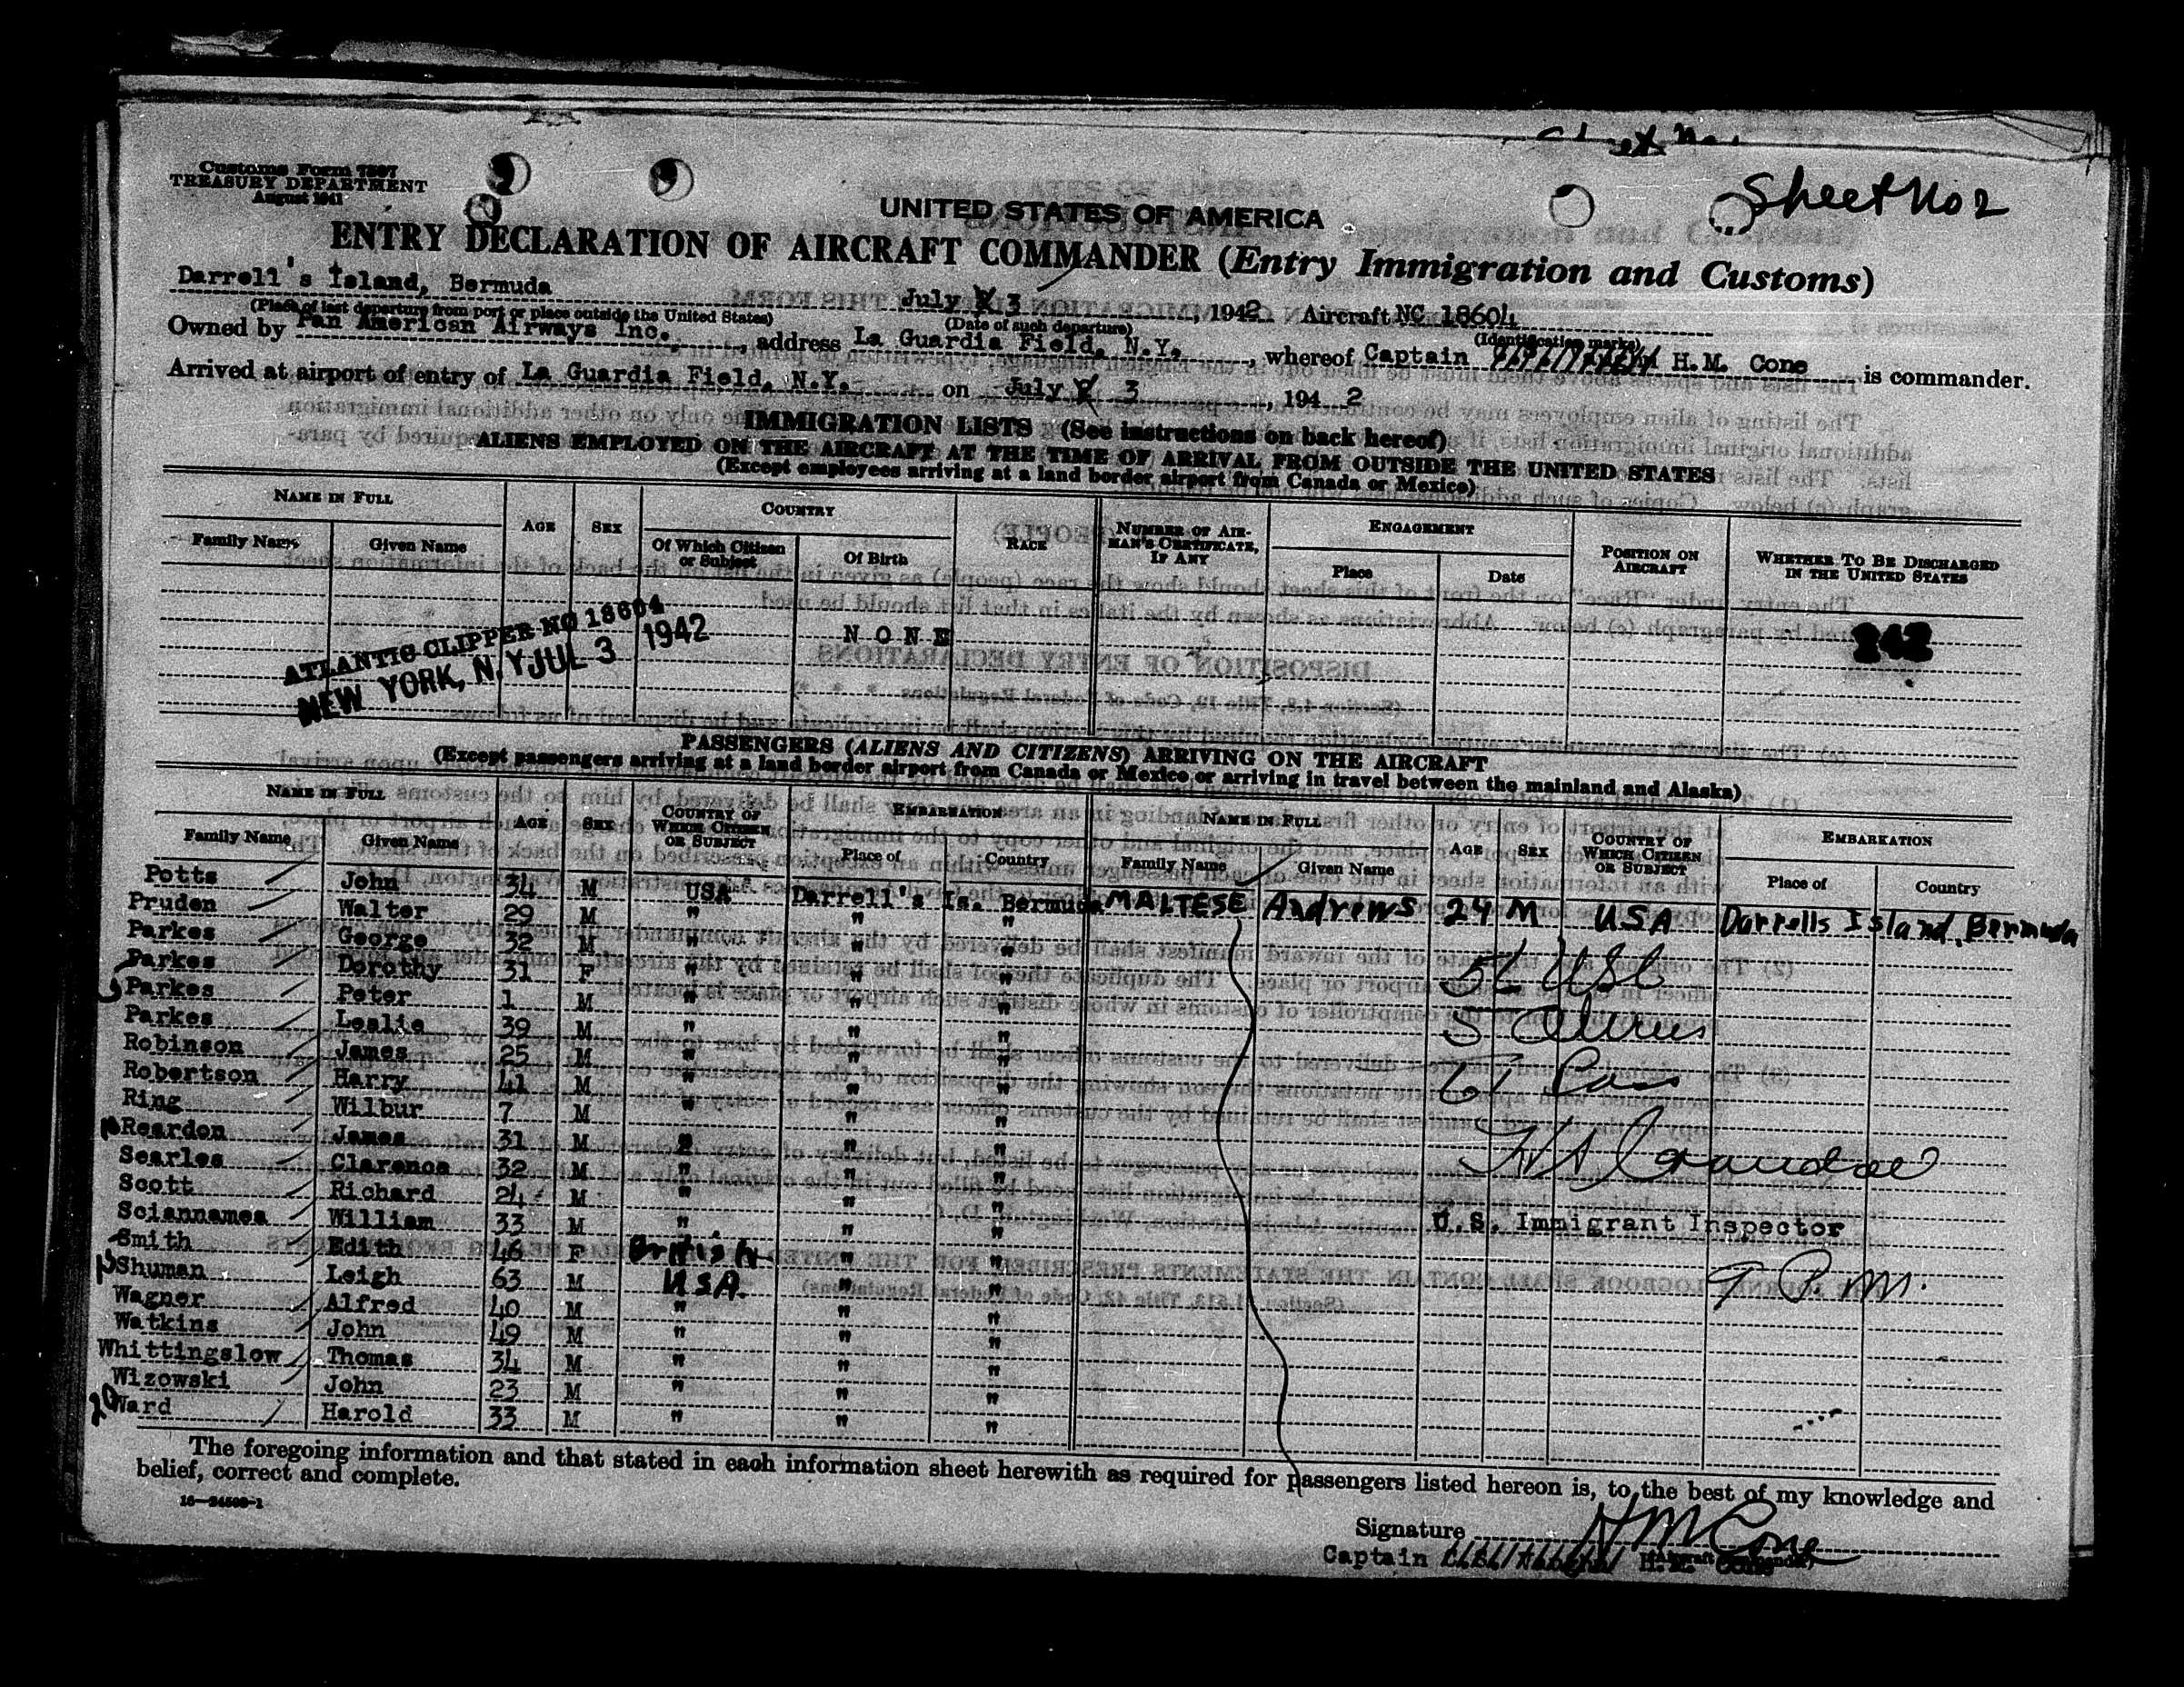 Sheet No 2
Customs Form 7507
TREASURY DEPARTMENT
August 1941
UNITED STATES OF AMERICA
ENTRY DECLARATION OF AIRCRAFT COMMANDER (Entry Immigration and Customs)
Darrell's Island, Bermuda July 3, 1942 Aircraft NC 18604
(Place of last departure from port or place outside the United States) (Date of such departure) (Identification marks)
Owned by Pan American Airways Inc., address La Guardia Field, N.Y., whereof Captain H.M. Cone is commander.
Arrived at airport of entry of La Guardia Field, N.Y. on July 3, 1942
IMMIGRATION LISTS (See instructions on back hereof)
ALIENS EMPLOYED ON THE AIRCRAFT AT THE TIME OF ARRIVAL FROM OUTSIDE THE UNITED STATES
(Except employees arriving at a land border airport from Canada or Mexico)
NAME IN FULL AGE SEX COUNTRY RACE NUMBER OF AIRMAN'S CERTIFICATE, IF ANY ENGAGEMENT POSITION ON AIRCRAFT WHETHER TO BE DISCHARGED IN THE UNITED STATES
Family Name Given Name Of Which Citizen or Subject Of Birth Place Date
NONE
242
ATLANTIC CLIPPER NO 18604
NEW YORK, N.Y. JUL 3 1942
PASSENGERS (ALIENS AND CITIZENS) ARRIVING ON THE AIRCRAFT
(Except passengers arriving at a land border airport from Canada or Mexico or arriving in travel between the mainland and Alaska)
NAME IN FULL AGE SEX COUNTRY OF WHICH CITIZEN OR SUBJECT EMBARKATION NAME IN FULL AGE SEX COUNTRY OF WHICH CITIZEN OR SUBJECT EMBARKATION
Family Name Given Name Place of Country Family Name Given Name Place of Country
Potts John 34 M USA Darrell's Is. Bermuda MALTESE Andrews 24 M USA Darrells Island, Bermuda
Pruden Walter 29 M " " "
Parkes George 32 M " " "
Parkes Dorothy 31 F " " "
Parkes Peter 1 M " " "
Parkes Leslie 39 M " " "
Robinson James 25 M " " "
Robertson Harry 41 M " " "
Ring Wilbur 7 M " " "
Reardon James 31 M " " "
Searles Clarence 32 M " " "
Scott Richard 24 M " " "
Sciannamea William 33 M " " "
Smith Edith 46 F British " "
Shuman Leigh 63 M USA. " "
Wagner Alfred 40 M " " "
Watkins John 49 M " " "
Whittingslow Thomas 34 M " " "
Wizowski John 23 M " " "
Ward Harold 33 M " " "
USC
5 Aliens
61 Pass
U.S. Immigrant Inspector
9 P.M.
The foregoing information and that stated in each information sheet herewith as required for passengers listed hereon is, to the best of my knowledge and
belief, correct and complete.
16—24508-1
Signature HM Cone
(Aircraft Commander)
Captain H.M. Cone